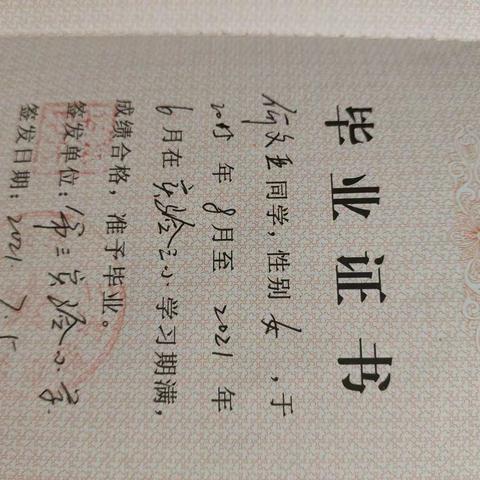 毕业证书
何文 同学，性别 女 ，于
2015 年 8 月至 2021 年
6 月在 实验三小 学习期满，
成绩合格，准予毕业。
签发单位：第三实验小学
签发日期：2021 7.5